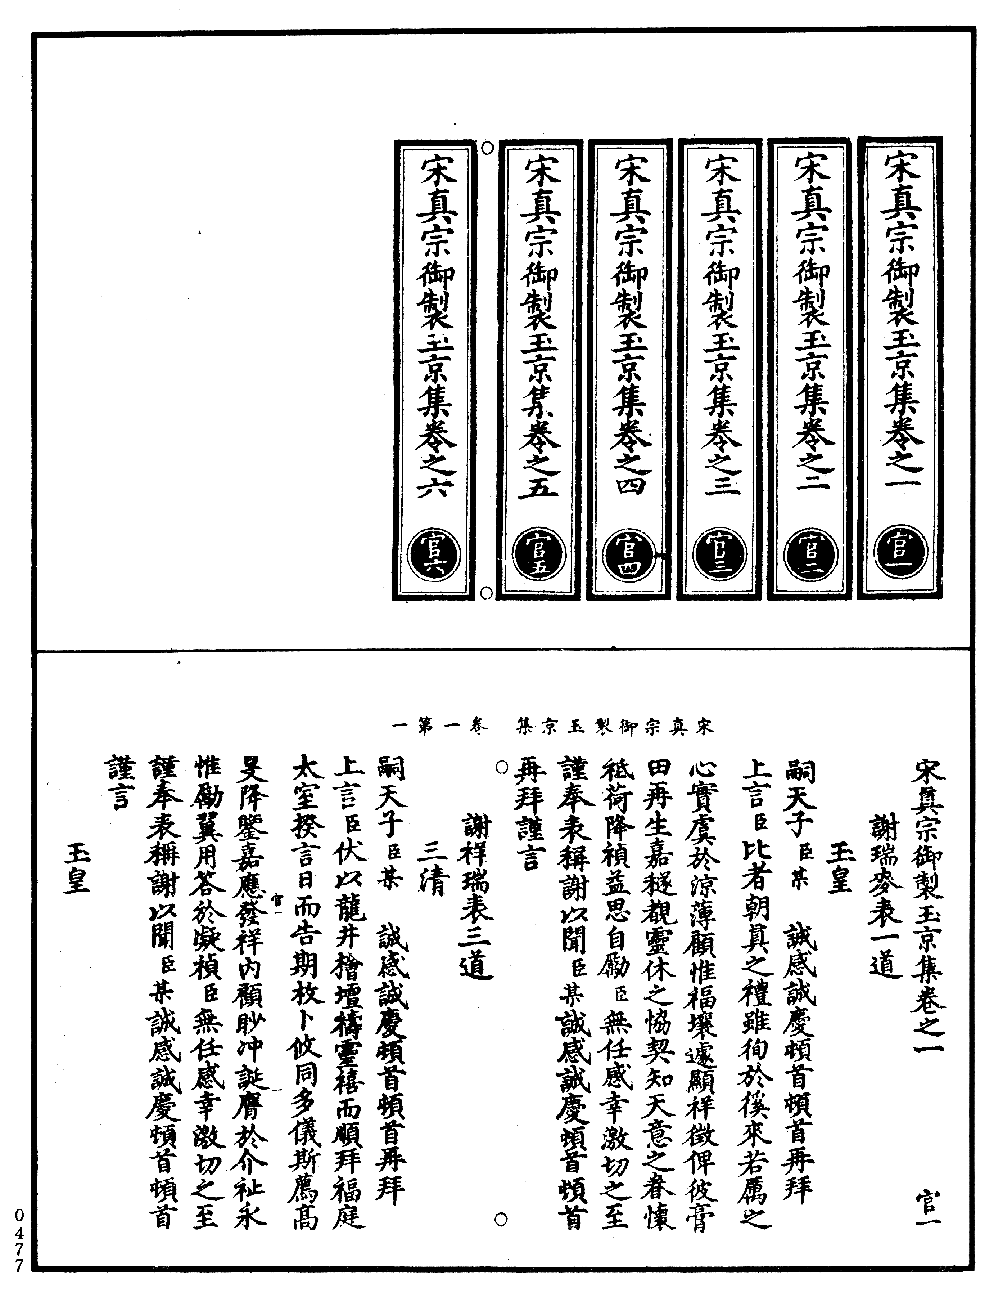 宋真宗御製玉京集卷之一
官一
宋真宗御製玉京集卷之二
官二
宋真宗御製玉京集卷之三
官三
宋真宗御製玉京集卷之四
官四
宋真宗御製玉京集卷之五
官五
宋真宗御製玉京集卷之六
官六
宋真宗御製玉京集 卷一第一
宋真宗御製玉京集卷之一 官一
謝瑞麥表一道
玉皇
嗣天子臣某 誠感誠慶頓首頓首再拜
上言臣比者朝真之禮雖徇於徯來若厲之
心實虞於涼薄顧惟福壤遽顯祥徵俾彼膏
田再生嘉穟覩靈休之協契知天意之眷懷
祗荷降禎益思自勵臣無任感幸激切之至
謹奉表稱謝以聞臣某誠感誠慶頓首頓首
再拜謹言
謝祥瑞表三道
三清
嗣天子臣某 誠感誠慶頓首頓首再拜
上言臣伏以龍井檜壇禱靈禧而順拜福庭
太室揆言日而告期枚卜攸同多儀斯薦高
旻降鑒嘉應發祥內顧眇冲誕膺於介祉永
官一
惟勵翼用答於凝禎臣無任感幸激切之至
謹奉表稱謝以聞臣某誠感誠慶頓首頓首
謹言
玉皇
0477